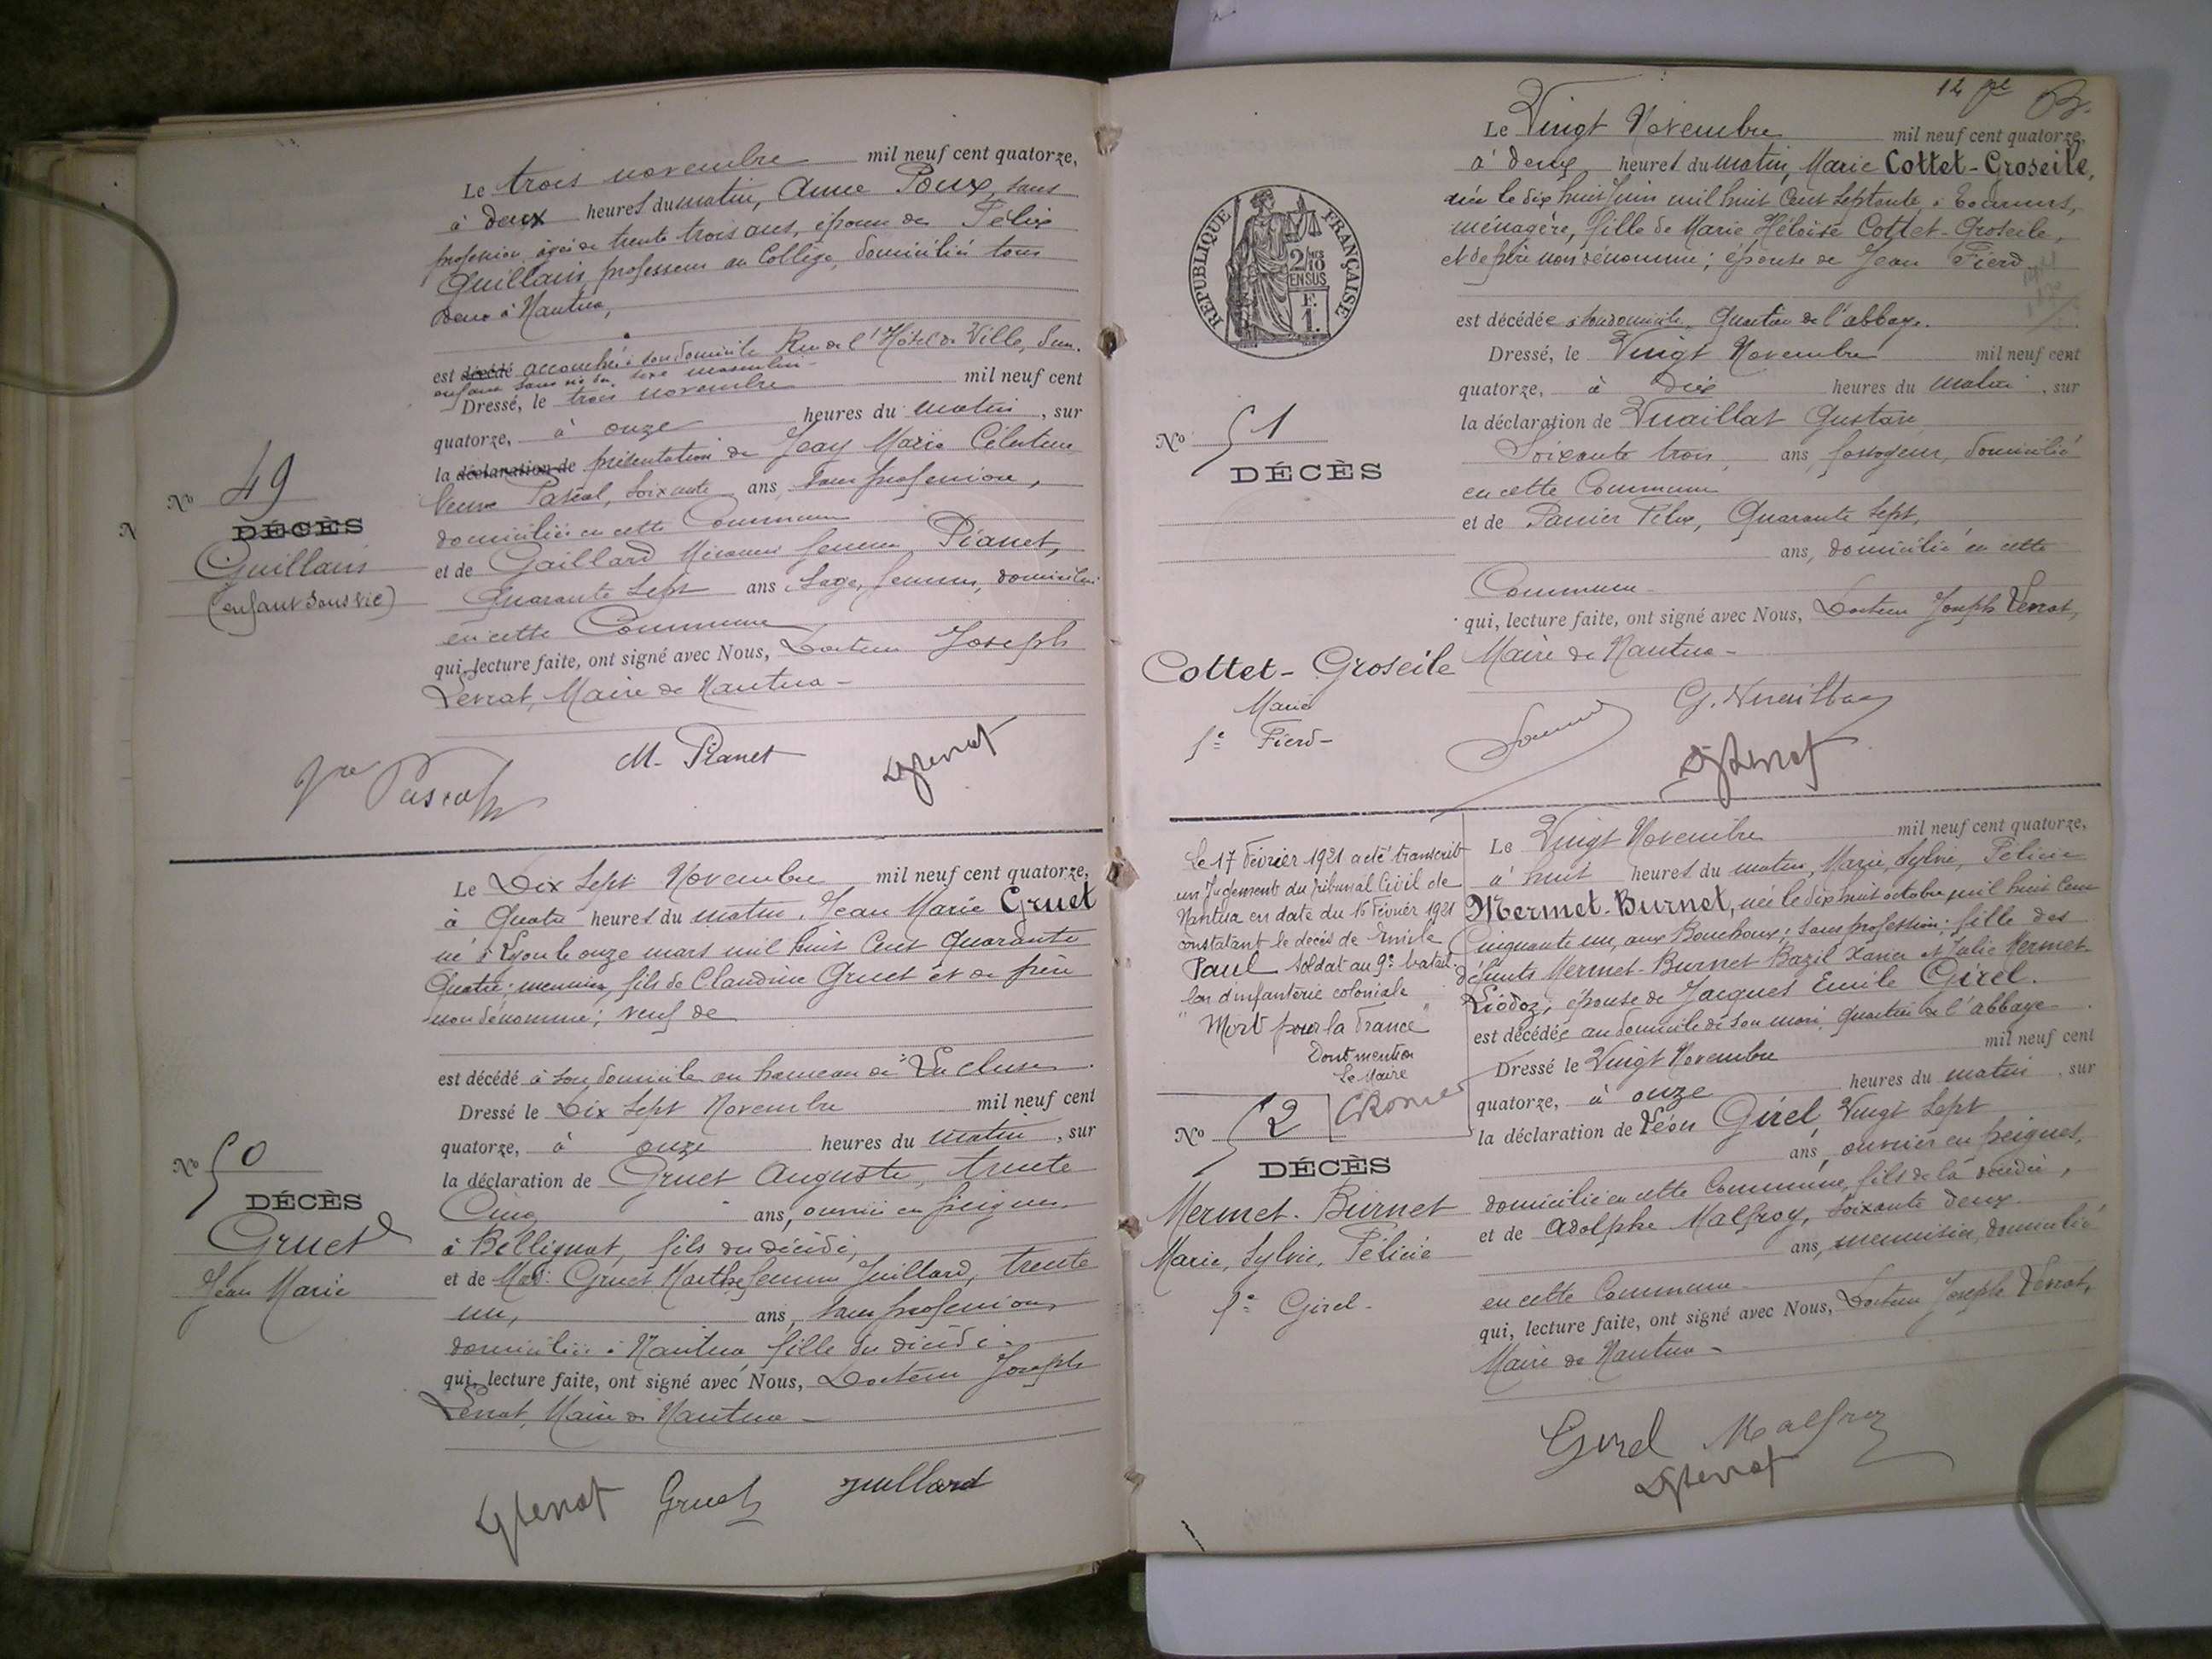 Le trois novembre mil neuf cent quatorze,
à deux heures du matin, Anne Poux, sans
profession, âgée de trente trois ans, épouse de Félix
Guillain, professeur au Collège, domiciliés tous
deux à Nantua,
est décédé accouchée à son domicile Rue de l'Hôtel de Ville, d'un
enfant sans vie du sexe masculin
Dressé, le trois novembre mil neuf cent
quatorze, à onze heures du matin, sur
la déclaration de présentation de Marie
Veuve Pascal, soixante ans, sans profession,
domiciliée en cette Commune
et de Gaillard femme Pianet,
Quarante Sept ans Sage femme, domiciliée
en cette Commune
qui, lecture faite, ont signé avec Nous, Docteur Joseph
Levrat, Maire de Nantua -
No 49
DÉCÈS
Guillain
(enfant sans vie)
Vve Pascal
M. Pianet
Levrat
Le Dix Sept Novembre mil neuf cent quatorze,
à Quatre heures du matin, Jean Marie Gruet
né à Lyon le onze mars mil huit Cent Quarante
Quatre; fils de Claudine Gruet et de père
non dénommé; veuf de
est décédé à son domicile au hameau de La Cluse
Dressé le Dix Sept Novembre mil neuf cent
quatorze, à onze heures du matin, sur
la déclaration de Gruet Auguste, trente
Cinq ans, ouvrier en peignes
à Bellignat, fils du décédé,
et de Gruet Marthe femme Juillard, trente
un, ans, sans profession
domiciliée à Nantua fille du décédé
qui, lecture faite, ont signé avec Nous, Docteur Joseph
Levrat, Maire de Nantua -
No 50
DÉCÈS
Gruet
Jean Marie
Levrat Gruet Juillard
12
Le Vingt Novembre mil neuf cent quatorze,
à deux heures du matin, Marie Cottet-Groseile,
née le dix huit Juin mil huit Cent Septante à
ménagère, fille de Marie Héloïse Cottet-Groseile,
et de père non dénommé; épouse de Jean Fierd
est décédée à son domicile, Quartier de l'abbaye.
Dressé, le Vingt Novembre mil neuf cent
quatorze, à dix heures du matin, sur
la déclaration de Vuaillat Gustave
Soixante trois, ans, fossoyeur, domicilié
en cette Commune
et de Félix, Quarante Sept,
ans, domicilié en cette
Commune -
qui, lecture faite, ont signé avec Nous, Docteur Joseph Levrat,
Maire de Nantua -
RÉPUBLIQUE FRANÇAISE
2/10
EN SUS
F.
1.
No 51
DÉCÈS
Cottet-Groseile
Marie
fe Fierd -
G. Vuaillat
Levrat
Le 17 Février 1921 a été transcrit
un Jugement du Tribunal Civil de
Nantua en date du 16 Février 1921
constatant le décès de Emile
Paul soldat au 9e batail-
lon d'infanterie coloniale
"Mort pour la France"
Dont mention
Le Maire
Le Vingt Novembre mil neuf cent quatorze,
à huit heures du matin, Marie, Sylvie, Félicie
Mermet-Burnet, née le dix huit octobre mil huit Cent
Cinquante un, aux Bouchoux; sans profession; fille des
défunts Mermet-Burnet Bazil Xavier et Julie Mermet-
Liodoz; épouse de Jacques Emile Girel.
est décédée au domicile de son mari, quartier de l'abbaye
Dressé le Vingt Novembre mil neuf cent
quatorze, à onze heures du matin, sur
la déclaration de Léon Girel, Vingt Sept
ans, ouvrier en peignes,
domicilié en cette Commune, fils de la décédée,
et de Adolphe Malfroy, soixante deux
ans, menuisier, domicilié
en cette Commune -
qui, lecture faite, ont signé avec Nous, Docteur Joseph Levrat,
Maire de Nantua -
No 52
DÉCÈS
Mermet-Burnet
Marie, Sylvie, Félicie
fe Girel -
Girel Malfroy
Levrat